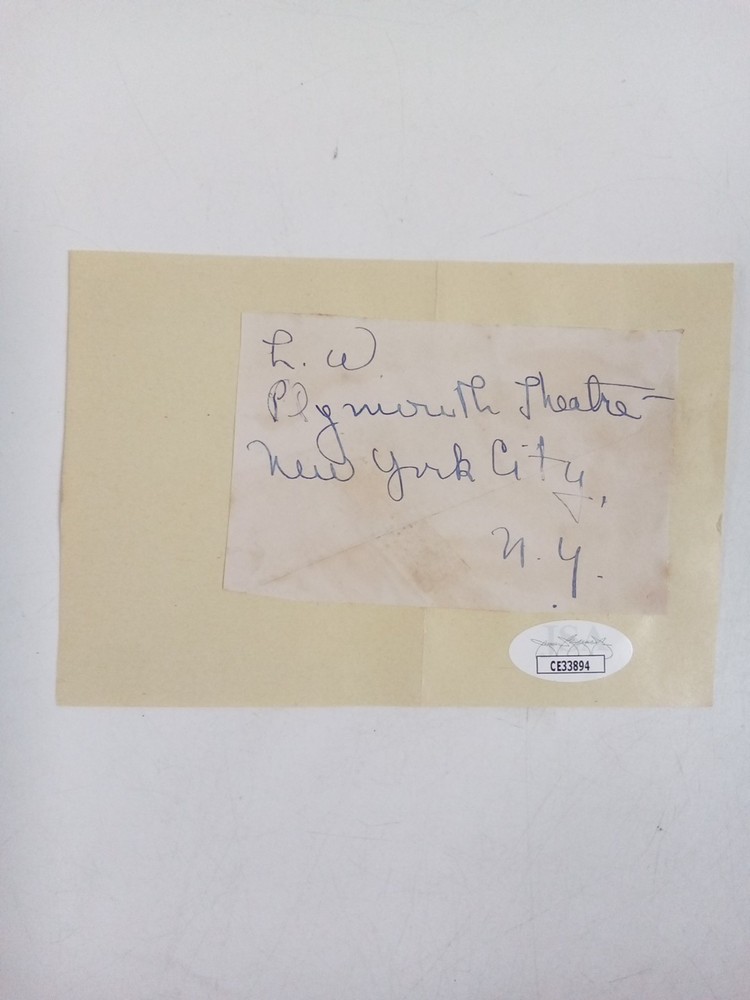 L. W
Plymouth Theatre
New York City,
N. Y.
JSA
CE33894